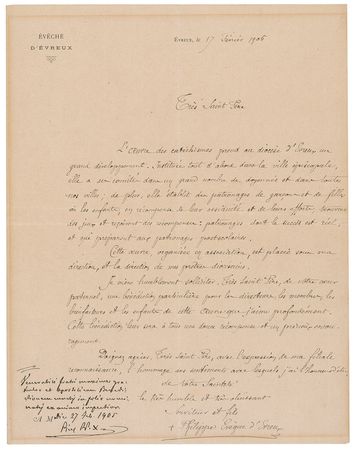 ÉVÊCHÉ
D'ÉVREUX
Évreux, le 17 février 1906
Très Saint Père
L'Œuvre des catéchismes prend au diocèse d'Evreux un
grand développement. Instituée tout d'abord dans la ville épiscopale,
elle a ses comités dans un grand nombre de doyennés et dans toutes
nos villes ; de plus, elle établit des patronages de garçons et de filles
où les enfants, en récompense de leur assiduité et de leurs efforts, trouvent
des jeux et reçoivent des récompenses ; patronages dont le succès est réel,
et qui préparent aux patronages postscolaires.
Cette œuvre, organisée en association, est placée sous ma
direction, et la direction de mes prêtres diocésains.
Je viens humblement solliciter, Très Saint Père, de votre cœur
paternel, une bénédiction particulière pour les directeurs, les membres, les
bienfaiteurs et les enfants de cette Œuvre que j'aime profondément.
Cette bénédiction leur sera à tous une douce récompense et un précieux encou-
ragement.
Daignez agréer, Très Saint Père, avec l'expression de ma filiale
reconnaissance, l'hommage des sentiments avec lesquels j'ai l'honneur d'être
de Votre Sainteté
le très humble et très obéissant
serviteur et fils
+ Philippe Evêque d'Evreux
Venerabili fratri
et
27 1906
Pius PP. X